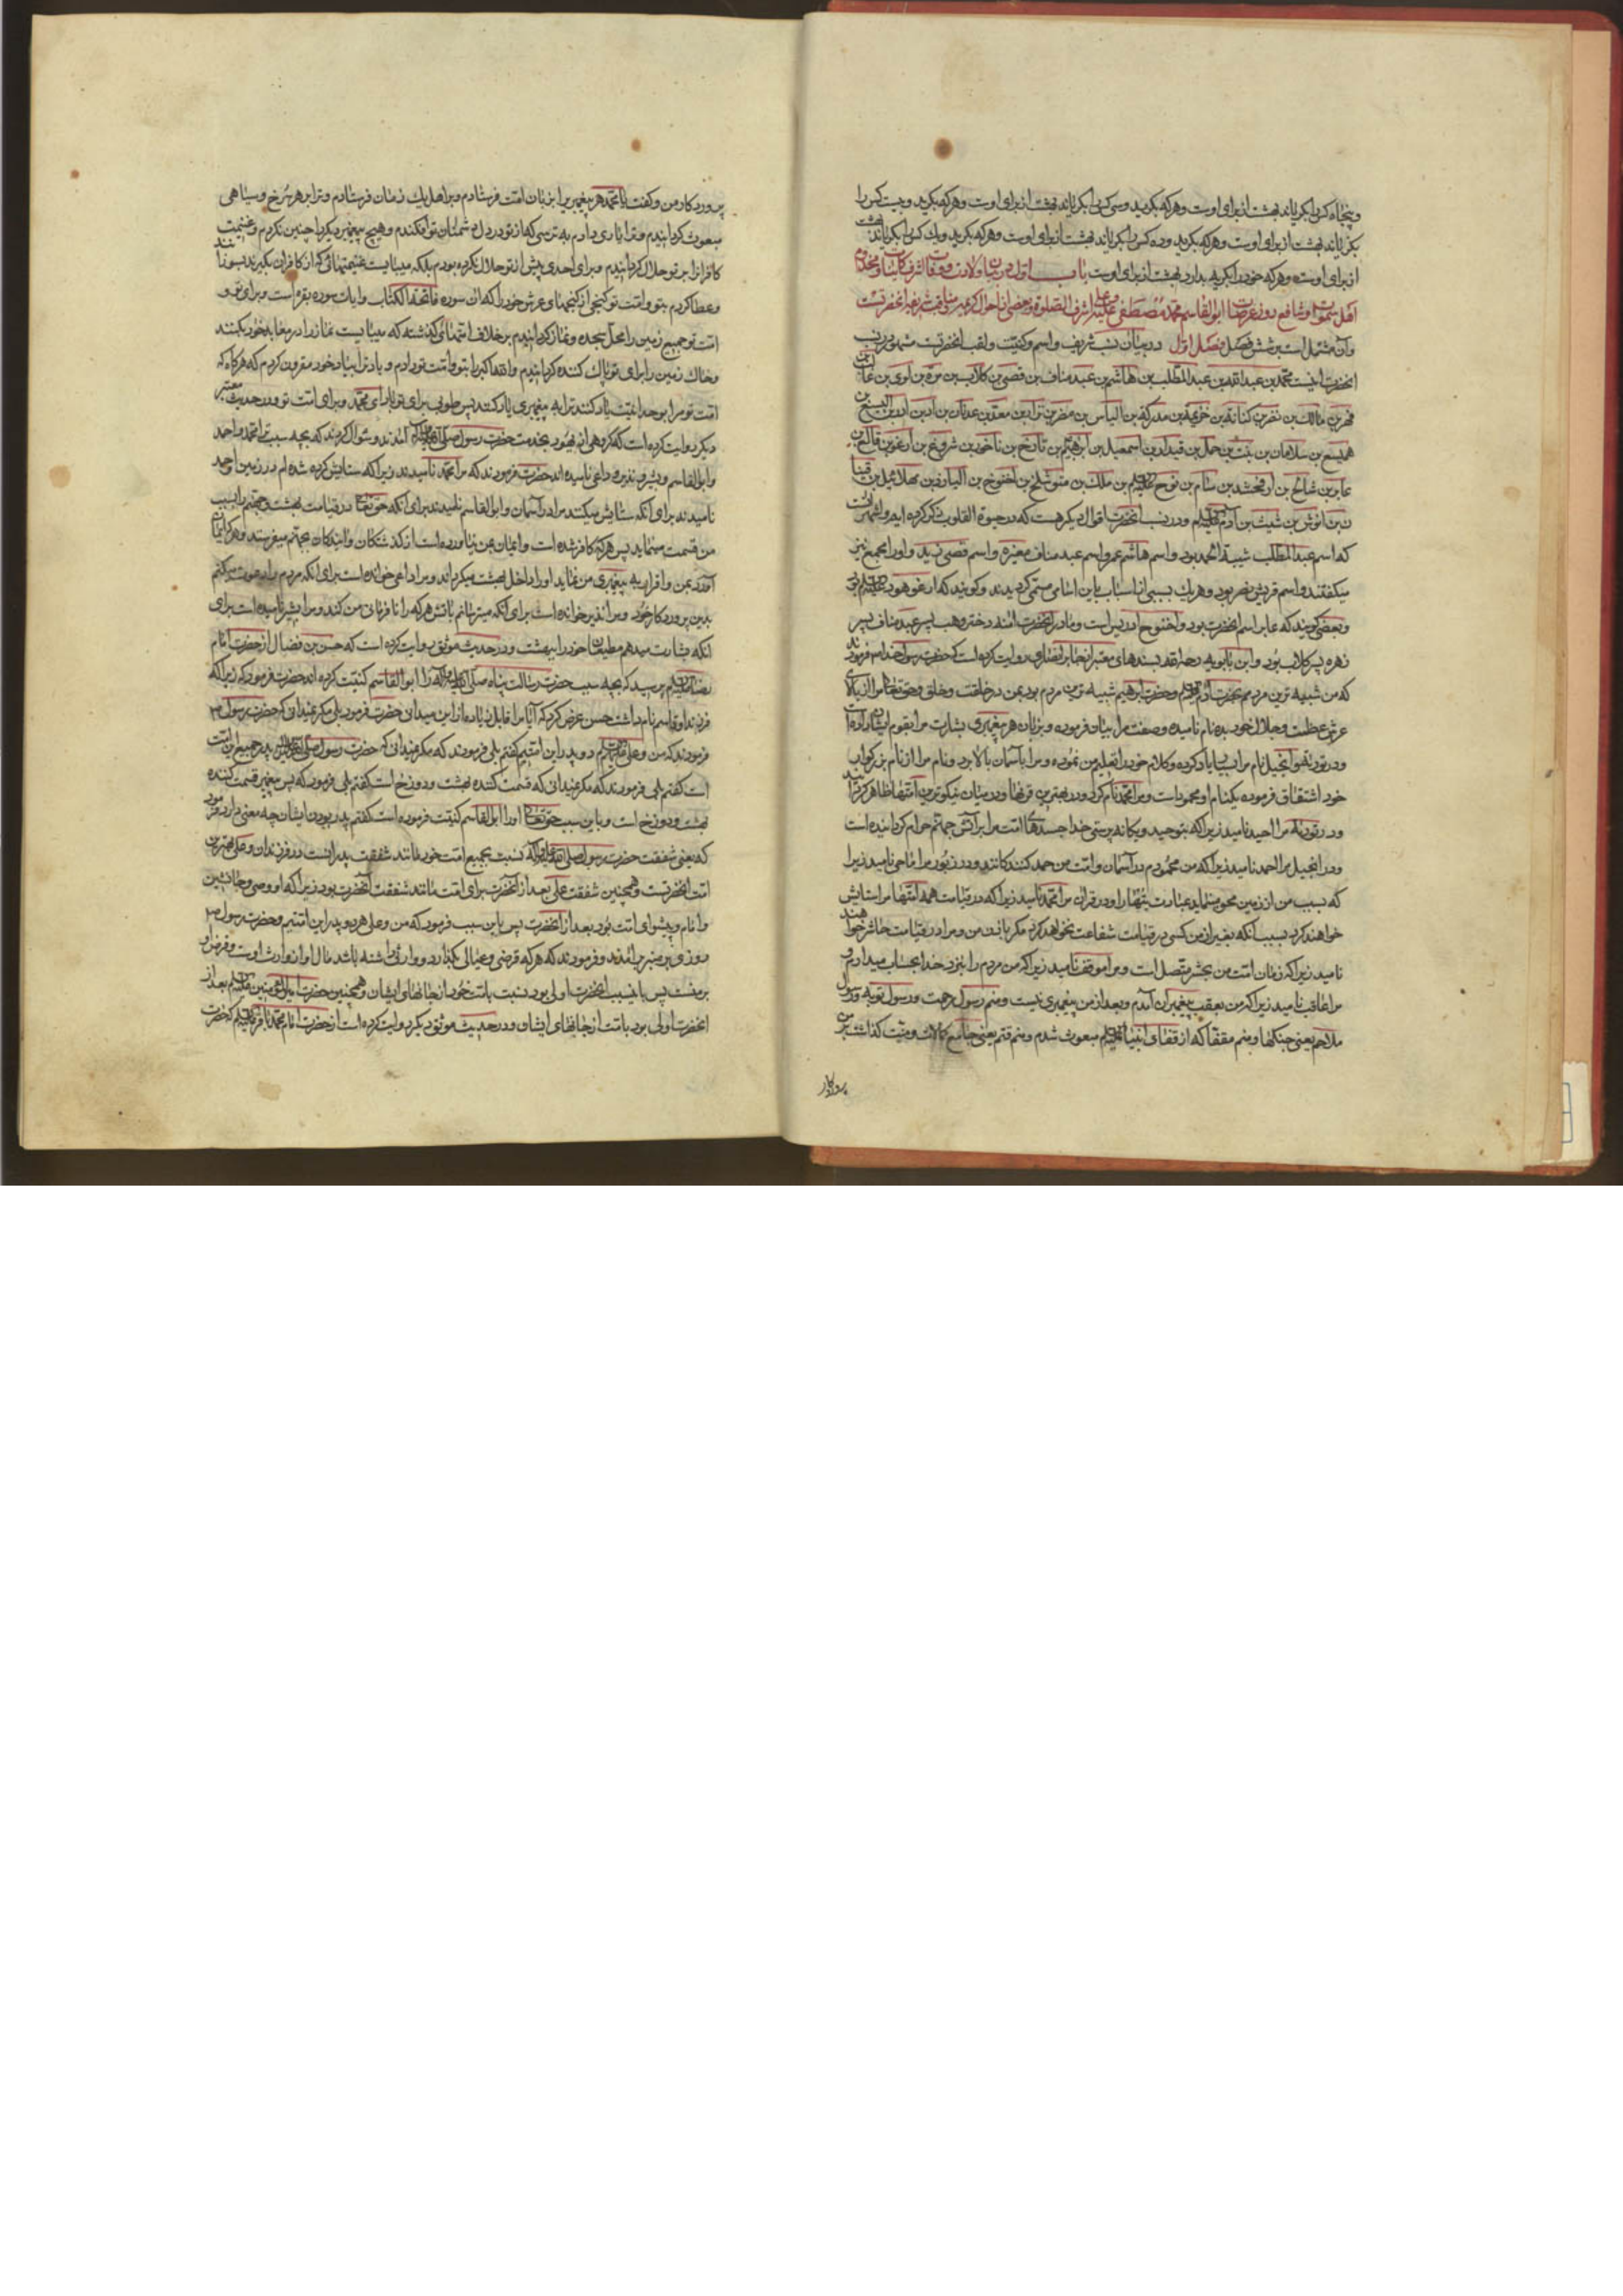 و پنجاه کس را بگریاند بهشت از برای اوست و هر که بگرید و سی کس را بگریاند بهشت از برای اوست و هر که بگرید و بیست کس را
بگریاند بهشت از برای اوست و هر که بگرید و ده کس را بگریاند بهشت از برای اوست و هر که بگرید و یک کس را بگریاند بهشت
از برای اوست و هر که خود را بگریه بدارد بهشت از برای اوست باب اول در بیان ولادت و وفات اشرف کاینات و مخدوم
اهل سموات و شافع روز عرصات ابو القاسم محمد مصطفی علیه و علی اشرف الصلوة و بعضی از احوال کریمه و مناقب شریفه آنحضرتست
و آن مشتمل است بر شش فصل فصل اول در بیان نسب شریف و اسم و کنیت و لقب آنحضرتست مشهور در نسب
آنحضرت اینست محمد بن عبد الله بن عبد المطلب بن هاشم بن عبد مناف بن قصی بن کلاب بن مره بن لوی بن غالب بن
فهر بن مالک بن نضر بن کنانه بن خزیمه بن مدرکه بن الیاس بن مضر بن نزار بن معد بن عدنان بن اد بن ادد بن الیسع بن
همیسع بن سلامان بن نبت بن حمل بن قیدار بن اسمعیل بن ابرهیم بن تارخ بن ناخور بن شروغ بن ارغو بن فالغ بن
عابر بن شالخ بن ارفخشد بن سام بن نوح علیه السلام بن ملک بن متوشلخ بن اخنوخ بن الیارد بن مهلائیل بن قینا
ن بن انوش بن شیث بن آدم علیه السلام و در نسب آنحضرت اقوال دیگر هست که در حیوة القلوب ذکر کرده ایم و اشهر آنست
که اسم عبد المطلب شیبة الحمد بود و اسم هاشم عمرو و اسم عبد مناف مغیره و اسم قصی زید و او را مجمع نیز
میگفتند و اسم قریش نضر بود و هر یک بسببی از اسباب باین اسامی مسمی گردیدند و گویند که ارغو هود علیه السلام بود
و بعضی گویند که عابر اسم آنحضرت بود و اخنوخ ادریس است و مادر آنحضرت آمنه دختر وهب پسر عبد مناف پسر
زهره پسر کلاب بود و ابن بابویه رحمه الله بسندهای معتبر از جابر انصاری روایت کرده است که حضرت رسول خدا ص فرمودند
که من شبیه ترین مردمم بحضرت آدم علیه السلام و حضرت ابرهیم شبیه ترین مردم بود بمن در خلقت و خلق و حق تعالی مرا از بالای
عرش عظمت و جلال خود بده نام نامیده و صفت مرا بیان فرموده و بزبان هر پیغمبری بشارت مرا بقوم ایشان داده است
و در توریة و انجیل نام مرا بسیار یاد کرده و کلام خود را تعلیم من نموده و مرا بآسمان بالا برد و نام مرا از نام بزرگوار
خود اشتقاق فرموده یکنام او محمود است و مرا محمد نام کرد و در بهترین قرنها و در میان نیکوترین امتها ظاهر گردانید
و در توریة مرا احید نامید زیرا که بتوحید و یگانه پرستی خدا جسدهای امت مرا بر آتش جهنم حرام گردانیده است
و در انجیل مرا احمد نامید زیرا که من محمودم در آسمان و امت من حمد کنندگانند و در زبور مرا ماحی نامید زیرا
که بسبب من از زمین محو مینماید عبادت بتها را و در قران مرا محمد نامید زیرا که در قیامت همه امتها مرا ستایش
خواهند کرد بسبب آنکه بغیر از من کسی در قیامت شفاعت نخواهد کرد مگر باذن من و مرا در قیامت حاشر خواهند
نامید زیرا که زمان امت من بحشر متصل است و مرا موقف نامید زیرا که من مردم را بنزد خدا بحساب میدارم و
مرا عاقب نامید زیرا که من بعقب پیغمبران آمدم و بعد از من پیغمبری نیست و منم رسول رحمت و رسول توبه و رسول
ملاحم یعنی جنگها و منم مقفا که از قفای انبیا علیهم السلام مبعوث شدم و منم قثم یعنی جامع کمالات و منت گذاشت بر من
پروردکار
پروردکار من و گفت یا محمد هر پیغمبری را بزبان امت فرستادم و بر اهل یک زمان فرستادم و ترا بر هر سرخ و سیاهی
مبعوث گردانیدم و ترا یاری دادم به ترسی که از تو در دل دشمنان تو افکندم و هیچ پیغمبر دیگر را چنین نکردم و غنیمت
کافران را بر تو حلال گردانیدم و برای احدی پیش از تو حلال نکرده بودم بلکه میبایست غنیمتهائی که از کافران بگیرند بسوزانند
و عطا کردم بتو و امت تو گنجی از گنجهای عرش خود را که آن سوره فاتحة الکتاب و آیات سوره بقره است و برای تو و
امت تو جمیع زمین را محل سجده و نماز گردانیدم بر خلاف امتهای گذشته که میبایست نماز را در معابد خود بکنند
و خاک زمین را برای تو پاک کننده گردانیدم و الله اکبر را بتو و امت تو دادم و یاد ترا بیاد خود مقرون کردم که هر گاه که
امت تو مرا بوحدانیت یاد کنند ترا به پیغمبری یاد کنند پس طوبی برای تو باد ای محمد و برای امت تو و در حدیث معتبر
دیگر روایت کرده است که گروهی از یهود بخدمت حضرت رسول صلی الله علیه و آله آمدند و سؤال کردند که بچه سبب ترا محمد و احمد
و ابو القاسم و بشیر و نذیر و داعی نامیده اند حضرت فرمودند که مرا محمد نامیدند زیرا که ستایش کرده شده ام در زمین و احمد
نامیدند برای آنکه ستایش میکنند مرا در آسمان و ابو القاسم نامیدند برای آنکه حق تعالی در قیامت بهشت و جهنم را بسبب
من قسمت مینماید پس هر که کافر شده است و ایمان بمن نیاورده است از گذشتگان و آیندگان بجهنم میفرستد و هر که ایمان
آورد بمن و اقرار به پیغمبری من نماید او را داخل بهشت میگرداند و مرا داعی خوانده است برای آنکه مردم را دعوت میکنم
بدین پروردکار خود و مرا نذیر خوانده است برای آنکه میترسانم بآتش هر که را نافرمانی من کند و مرا بشیر نامیده است برای
آنکه بشارت میدهم مطیعان خود را ببهشت و در حدیث موثق روایت کرده است که حسن بن فضال از حضرت امام
رضا علیه السلام پرسید که بچه سبب حضرت رسالت پناه صلی الله علیه و آله را ابو القاسم کنیت کرده اند حضرت فرمود که زیرا که
فرزند او قاسم نام داشت حسن عرض کرد که آیا مرا قابل زیاده از این میدانی حضرت فرمود بلی مگر نمیدانی که حضرت رسول ص
فرمودند که من و علی علیه السلام دو پدر این امتیم گفتم بلی فرمودند که مگر نمیدانی که حضرت رسول صلی الله علیه و آله پدر جمیع این امت
است گفتم بلی فرمودند که مگر نمیدانی که قسمت کننده بهشت و دوزخ است گفتم بلی فرمود که پس پیغمبر قسمت کننده
بهشت و دوزخ است و باین سبب حق تعالی او را ابو القاسم کنیت فرموده است گفتم پدر بودن ایشان چه معنی دارد فرمود
که یعنی شفقت حضرت رسول صلی الله علیه و آله نسبت بجمیع امت خود مانند شفقت پدرانست در فرزندان و علی بهترین
امت آنحضرتست و همچنین شفقت علی بعد از آنحضرت برای امت مانند شفقت آنحضرت بود زیرا که او وصی و جانشین
و امام و پیشوای امت بود بعد از آنحضرت پس باین سبب فرمود که من و علی هر دو پدر این امتیم و حضرت رسول ص
روزی بر منبر بر آمدند و فرمودند که هر که قرضی و عیالی بگذارد و وارثی داشته باشد مال او از وارث اوست و قرض او
بر منست پس باین سبب آنحضرت اولی بود نسبت بامت خود از جانهای ایشان و همچنین حضرت امیر المؤمنین علیه السلام بعد از
آنحضرت اولی بود بامت از جانهای ایشان و در حدیث موثق دیگر روایت کرده است از حضرت امام محمد باقر علیه السلام که حضرت